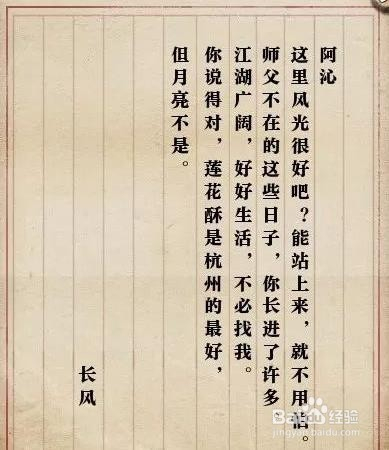 阿沁
这里风光很好吧？能站上来，就不用
师父不在的这些日子，你长进了许多。
江湖广阔，好好生活，不必找我。
你说得对，莲花酥是杭州的最好，
但月亮不是。
长风
Baidu经验
jingyan.baidu.com